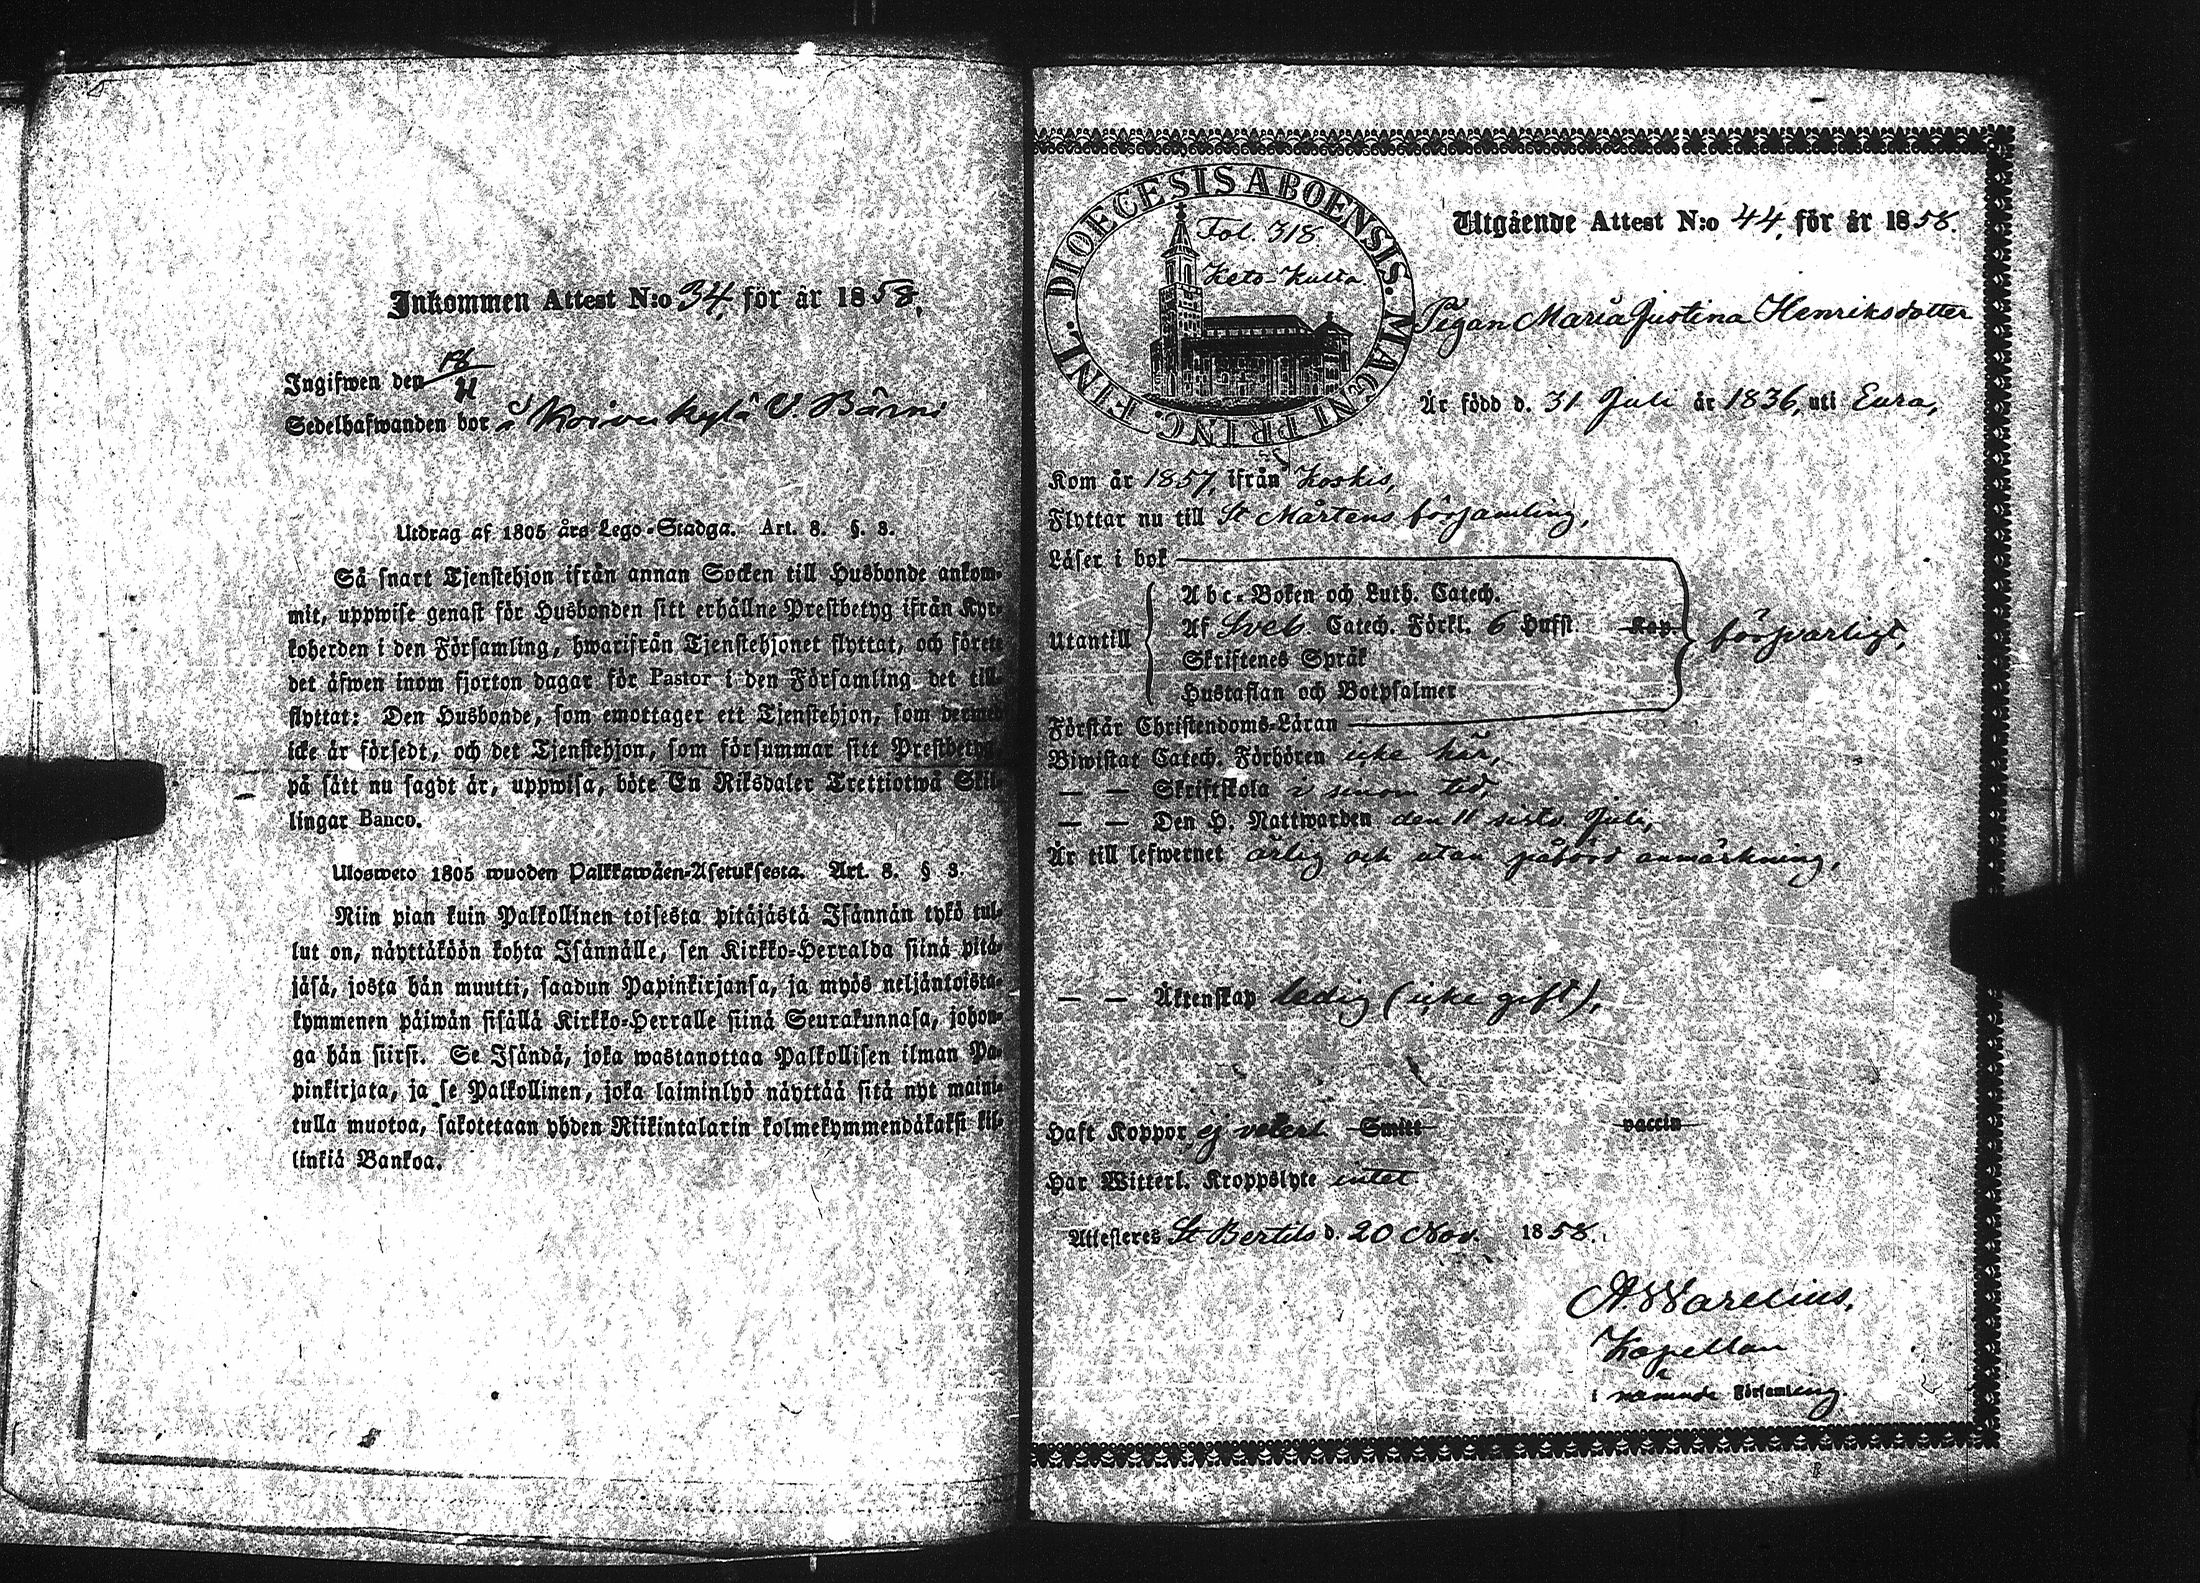 Inkommen Attest N:o 34, för år 1858,
Ingifwen den 18/11
Sedelhafwanden bor i Koivukylä V Bärni
Utdrag af 1805 års Lego-Stadga. Art. 8. §. 3.
Så snart Tjenstehjon ifrån annan Socken till Husbonde ankom-
mit, uppwise genast för Husbonden sitt erhållne Prestbetyg ifrån Kyr-
koherden i den Församling, hwarifrån Tjenstehjonet flyttat, och förete
det äfwen inom fjorton dagar för Pastor i den Församling det till-
flyttat: Den Husbonde, som emottager ett Tjenstehjon, som dermed
icke är försedt, och det Tjenstehjon, som försummar sitt Prestbetyg,
på sätt nu sagdt är, uppwisa, böte En Riksdaler Trettiotwå Skil-
lingar Banco.
Ulosweto 1805 wuoden Palkkawäen-Asetuksesta. Art. 8. § 3.
Niin pian kuin Palkollinen toisesta pitäjästä Isännän tykö tul-
lut on, näyttäköön kohta Isännälle, sen Kirkko-Herralda siinä pitä-
jäsä, josta hän muutti, saadun Papinkirjansa, ja myös neljäntoista-
kymmenen päiwän sisällä Kirkko-Herralle siinä Seurakunnasa, johon-
ga hän siirsi. Se Isändä, joka wastanottaa Palkollisen ilman Pa-
pinkirjata, ja se Palkollinen, joka laiminlyö näyttää sitä nyt maini-
tulla muotoa, sakotetaan yhden Riikintalarin kolmekymmendäkaksi kil-
linkiä Bankoa.
DIOECESIS ABOENSIS. MAGNI PRINC. FINL.
Fol. 318
Keto-Kulta
Utgående Attest N:o 44, för år 1858.
Pigan Maria Justina Henriksdotter
Är född d. 31 Juli år 1836, uti Eura,
Kom år 1857, ifrån Koskis,
Flyttar nu till St Mårtens församling,
Läser i bok
Abc-Boken och Luth. Catech.
Utantill
Af Sveb. Catech. Förkl. 6 Hufst. Kap.
försvarligt,
Skriftenes Språk
Hustaflan och Botpsalmer
Förstår Christendoms-Läran
Biwistat Catech. Förhören icke här,
— — Skriftskola i sinom tid,
— — Den H. Nattwarden den 11 sistl. Juli,
Är till lefwernet ärlig och utan påbörd anmärkning,
— — Äktenskap ledig (icke gift),
Haft Koppor ej veterl. Smitt vaccin
Har Witterl. Kroppslyte intet
Attesteres St Bertils d. 20 Nov. 1858.
A. Warelius,
Kapellan
i nämnde Församling.